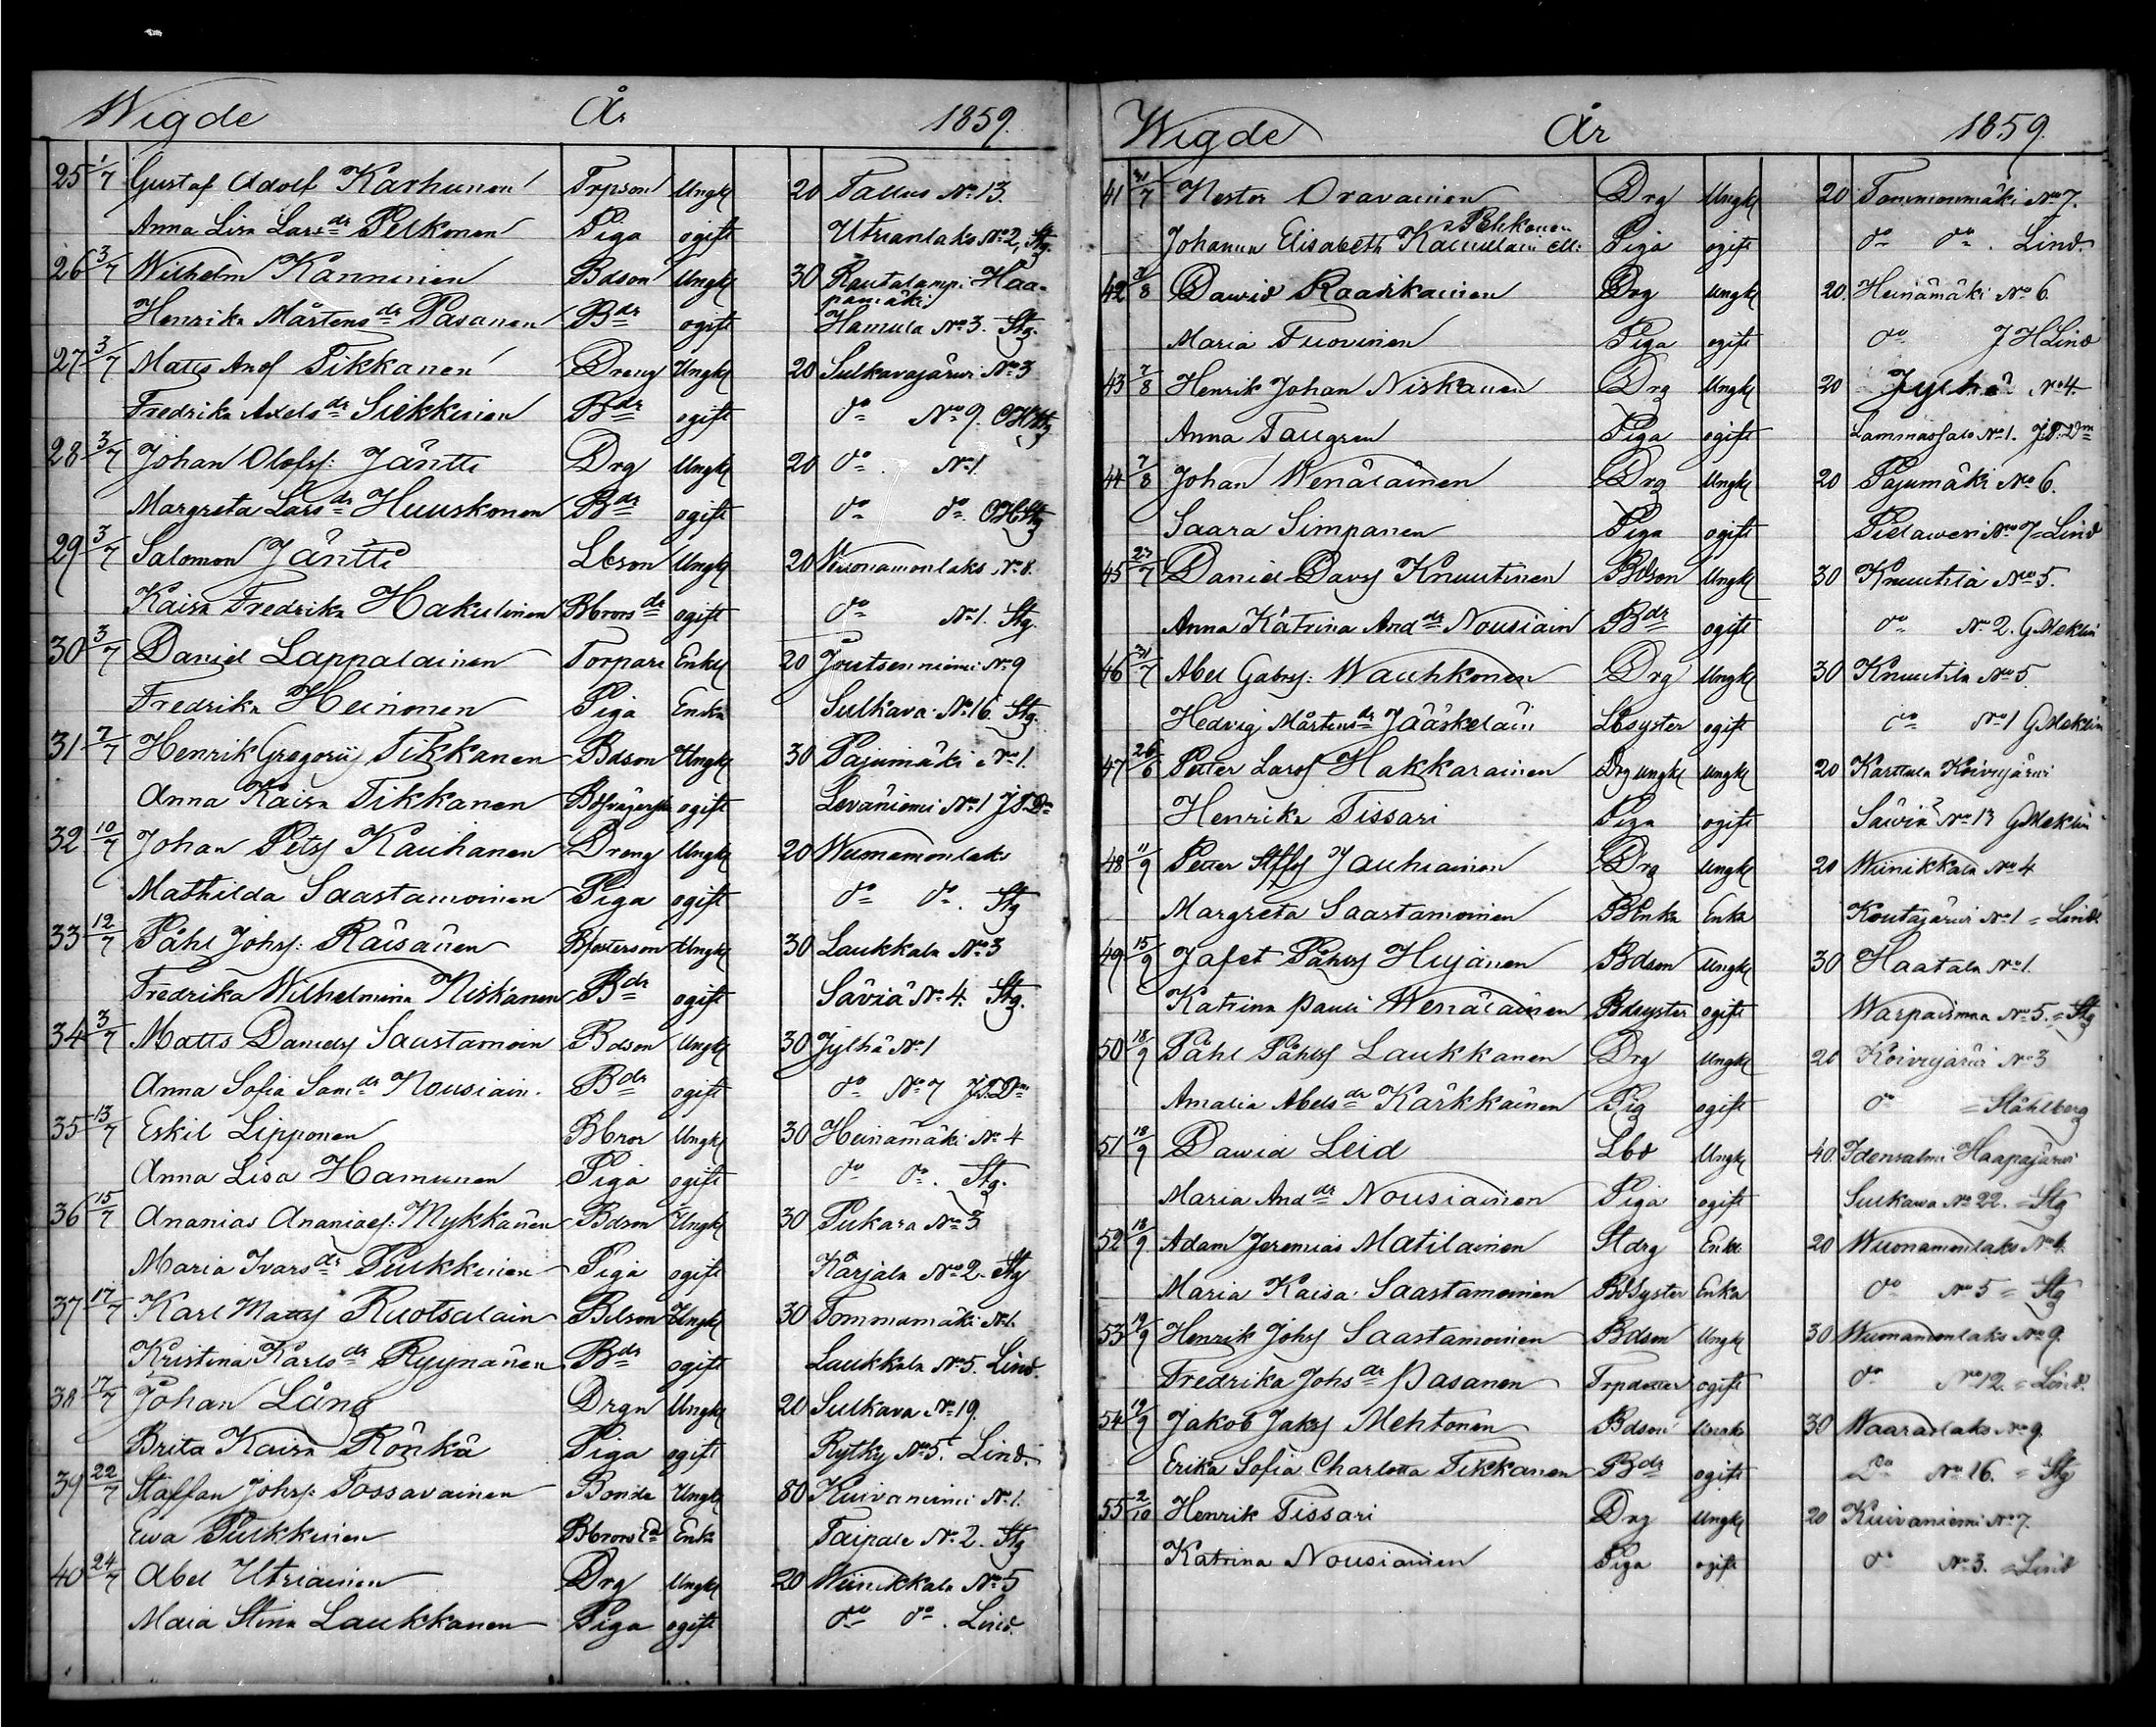 Wigde År 1859.
25 1/7 Gustaf Adolf Karhunen Trpson Ungk 20 Tallus No 13.
Anna Lisa Larsdr Pelkonen Piga ogift Utrianlaks No 2, Stg.
26 3/7 Wilhelm Kanninen Bdson Ungk 30 Rautalampi Haa-
pamäki
Henrika Mårtensdr Pasanen Bdr ogift Hamula No 3. Stg.
27 3/7 Matts Andf Tikkanen Dreng Ungk 20 Sulkavajärwi No 3
Fredrika Axelsdr Siekkinen Bdr ogift do No 9. OHStg
28 3/7 Johan Olofsf: Jäntti Drg Ungk 20 do No 1.
Margreta Larsdr Huuskonen Bdr ogift do do. OHStg
29 3/7 Salomon Jäntti Lbson Ungk 20 Wuonamonlaks No 8.
Kaisa Fredrika Hakulinen Bbrorsdr ogift do No 1. Stg.
30 3/7 Daniel Lappalainen Torpare Enkl 20 Joutsenniemi No 9
Fredrika Heinonen Piga Enka Sulkava No 16. Stg.
31 7/7 Henrik Gregorij Tikkanen Bdson Ungk 30 Pajumäki No 1.
Anna Kaisa Tikkanen ogift Leväniemi No 1 J.P.Dm
32 10/7 Johan Petsf Kauhanen Dreng Ungk 20 Wuonamonlaks
Mathilda Saastamoinen Piga ogift do do. Stg
33 12/7 Påhl Johsf: Räisänen Ungk 30 Laukkala No 3
Fredrika Wilhelmina Niskanen Bdr ogift Säviä No 4. Stg.
34 3/7 Matts Danielsf Saastamoin Bdson Ungk 30 Jylhä No 1
Anna Sofia Samdr Nousiain. Bdr ogift do No 7 J.P.Dm
35 13/7 Eskil Lipponen Bbror Ungk 30 Heinämäki No 4
Anna Lisa Hamunen Piga ogift do do. Stg.
36 15/7 Ananias Ananiaef: Mykkänen Bdson Ungk 30 Pukara No 3
Maria Ivarsdr Pulkkinen Piga ogift Karjala No 2. Stg
37 17/7 Karl Mattsf Ruotsalain Bdson Ungk 30 Tommomäki No 1.
Kristina Karlsdr Ryynänen Bdr ogift Laukkala No 5. Lind.
38 17/7 Johan Lång Drgn Ungk 20 Sulkava No 19.
Brita Kaisa Rönkä Piga ogift Rytky No 5. Lind.
39 22/7 Staffan Johsf: Tossavainen Bonde Ungk 80 Kuivaniemi No 1.
Ewa Pulkkinen Enka Taipale No 2. Stg
40 24/7 Abel Utriainen Drg Ungk 20 Wiinikkala No 5
Maria Stina Laukkanen Piga ogift do do. Lind.
Wigde År 1859.
41 31/7 Nestor Oravainen Drg Ungk 20 Tommonmäki No 7.
Pehkonen
Johanna Elisabeth ell: Piga ogift do do. Lind.
42 7/8 Dawid Raatikainen Drg Ungk 20. Heinämäki No 6.
Maria Tuovinen Piga ogift do J H Lind
43 7/8 Henrik Johan Niskanen Drg Ungk 20 Jylhä No 4.
Anna Taugren Piga ogift Lammassalo No 1. J.P.Dm
44 7/8 Johan Wenäläinen Drg Ungk 20 Pajumäki No 6.
Saara Simpanen Piga ogift Pielawesi No 7 = Lind
45 23/7 Daniel Davsf Knuutinen Bdson Ungk 30 Knuutila No 5.
Anna Katrina Anddr Nousiain Bdr ogift do No 2. G Meklin
46 31/7 Abel Gabrsf: Wauhkonen Drg Ungk 30 Knuutila No 5
Hedvig Mårtensdr Jääskeläin Lbsyster ogift do No 1 G Meklin
47 26/6 Petter Larsf Hakkarainen Drg ungk Ungk 20 Karttula Koivujärwi
Henrika Tissari Piga ogift Säviä No 13 G Meklin
48 11/9 Petter Staffsf Jauhiainen Drg Ungk 20 Wiinikkala No 4
Margreta Saastamoinen BEnka Enka Koutajärwi No 1 = Lind
49 15/9 Jafet Påhlsf Hujanen Bdson Ungk 30 Haatala No 1.
Katrina Pauli Wenäläinen Bdsyster ogift Warpaismaa No 5. = Stg
50 18/9 Påhl Påhlsf Laukkanen Drg Ungk 20 Koivujärwi No 3
Amalia Abelsdr Kärkkäinen Pig ogift do = Ståhlberg
51 18/9 Dawid Leid Lbd Ungk 40. Idensalmi Haapajärwi
Maria Anddr Nousiainen Piga ogift Sulkawa No 22. = Stg
52 18/9 Adam Jeremias Matilainen Stdrg Enkl 20 Wuonamonlaks No 4.
Maria Kaisa Saastamoinen BdSyster Enka do No 5 = Stg
53 19/9 Henrik Johsf Saastamoinen Bdson Ungk 30 Wuonamonlaks No 9.
Fredrika Johsdr Pasanen Trpdotter ogift do No 12. = Lind.
54 19/9 Jakob Jaksf Mehtonen Bdson Ungk 30 Waaraslaks No 9.
Erika Sofia Charlotta Tikkanen Bdr ogift Do No 16. = Stg
55 2/10 Henrik Tissari Drg Ungk 20 Kuivaniemi No 7.
Katrina Nousiainen Piga ogift do No 3. = Lind